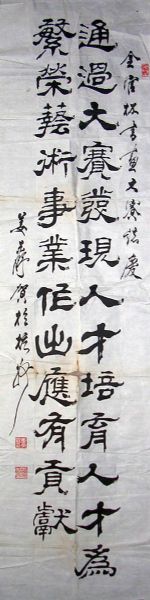 全官杯書畫大賽誌慶
通過大賽發現人才培育人才為
繁榮藝術事業作出應有貢獻
姜 賀於